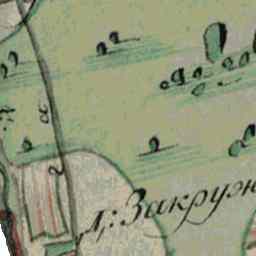 д: Закруж